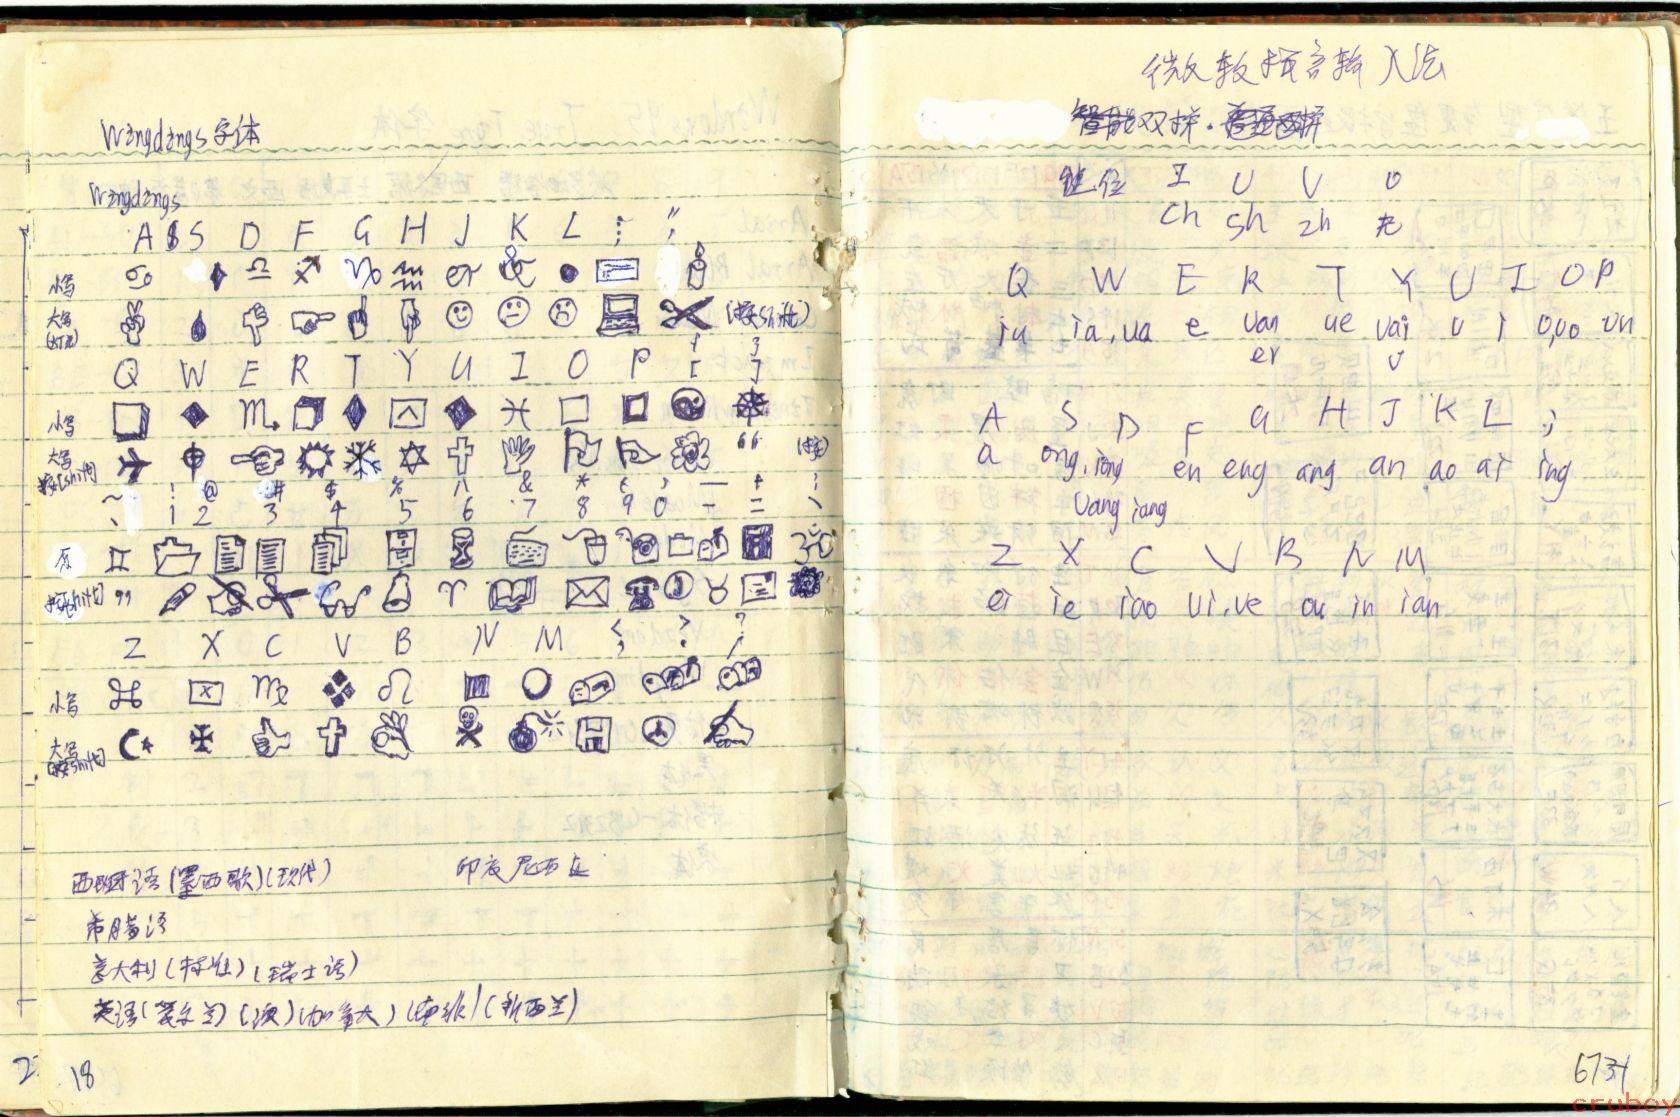 Wingdings字体
Wingdings
A S D F G H J K L ; "
小写
大写 (按shift)
Q W E R T Y U I O P [ ]
小写
大写 按[shift] “ (按)
~ ! @ # $ % ^ & * ( ) — + |
、 1 2 3 4 5 6 7 8 9 0 - = \
原
按[shift] ”
Z X C V B N M < > ?
, . /
小写
大写 [按shift]
西班牙语(墨西歌)(现代) 印度尼西亚
希腊语
意大利(标准)(瑞士语)
英语(爱尔兰)(澳)(加拿大)(南非)(新西兰)
18
微软拼音输入法
双拼.
键位 I U V O
Ch Sh zh 无
Q W E R T Y U I O P
iu ia,ua e uan ue uai u i o,uo un
er ü
A S D F G H J K L ;
a ong,iong en eng ang an ao ai ing
uang iang
Z X C V B N M
ei ie iao ui,ve ou in ian
67
31
cruboy